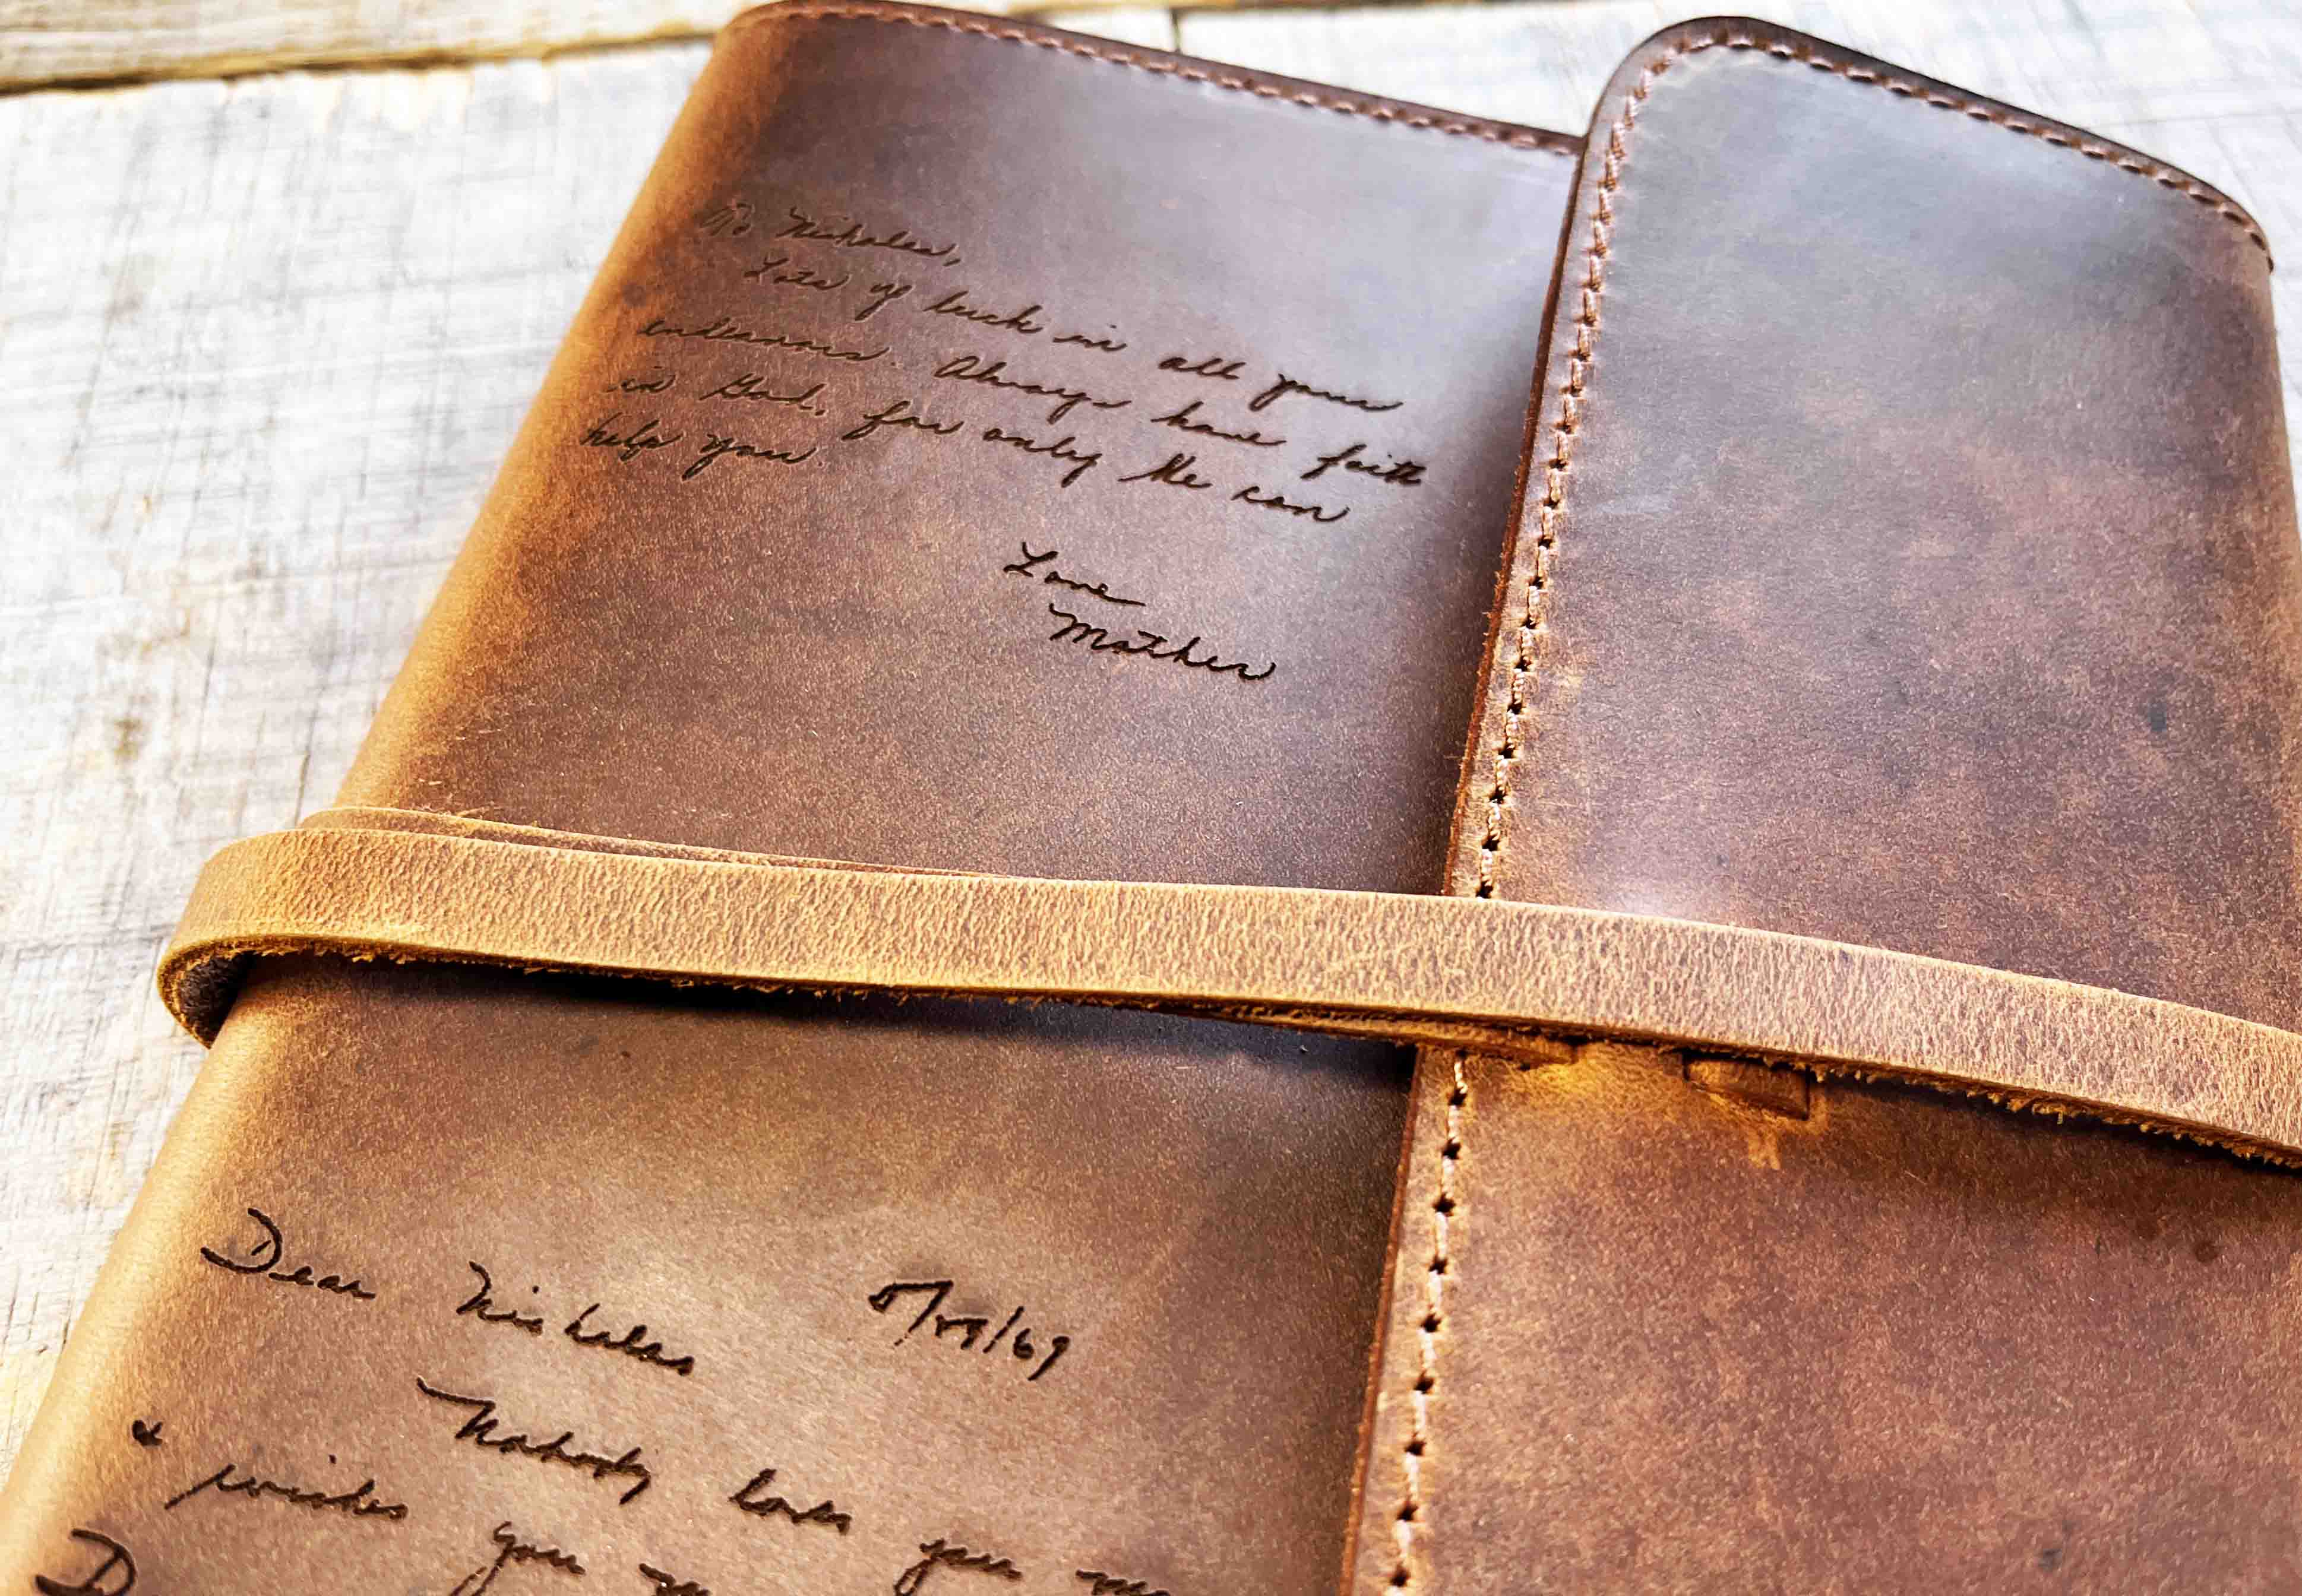 To Nicholas,
Lots of luck in all your
endeavors. Always have faith
in God, for only He can
help you.
Love
Mother
Dear Nicholas
Nobody loves you
& wishes you